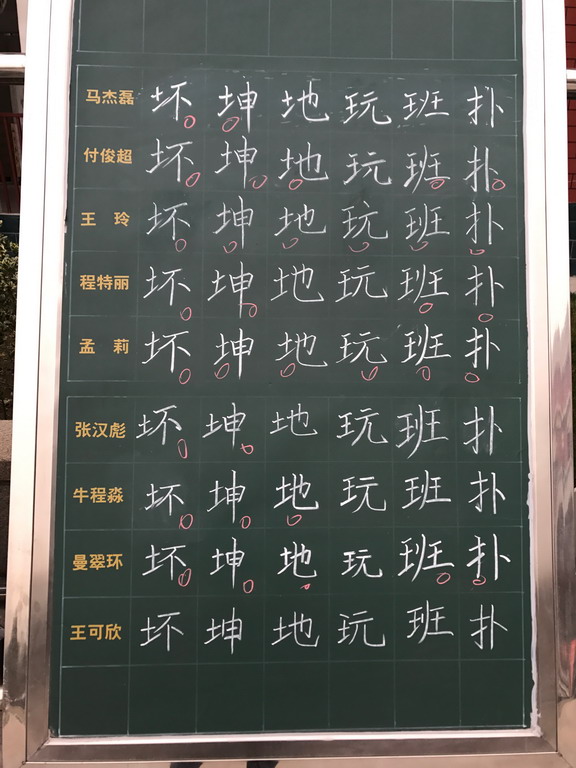 马杰磊 坏 坤 地 玩 班 扑
付俊超 坏 坤 地 玩 班 扑
王 玲 坏 坤 地 玩 班 扑
程特丽 坏 坤 地 玩 班 扑
孟 莉 坏 坤 地 玩 班 扑
张汉彪 坏 坤 地 玩 班 扑
牛程淼 坏 坤 地 玩 班 扑
曼翠环 坏 坤 地 玩 班 扑
王可欣 坏 坤 地 玩 班 扑